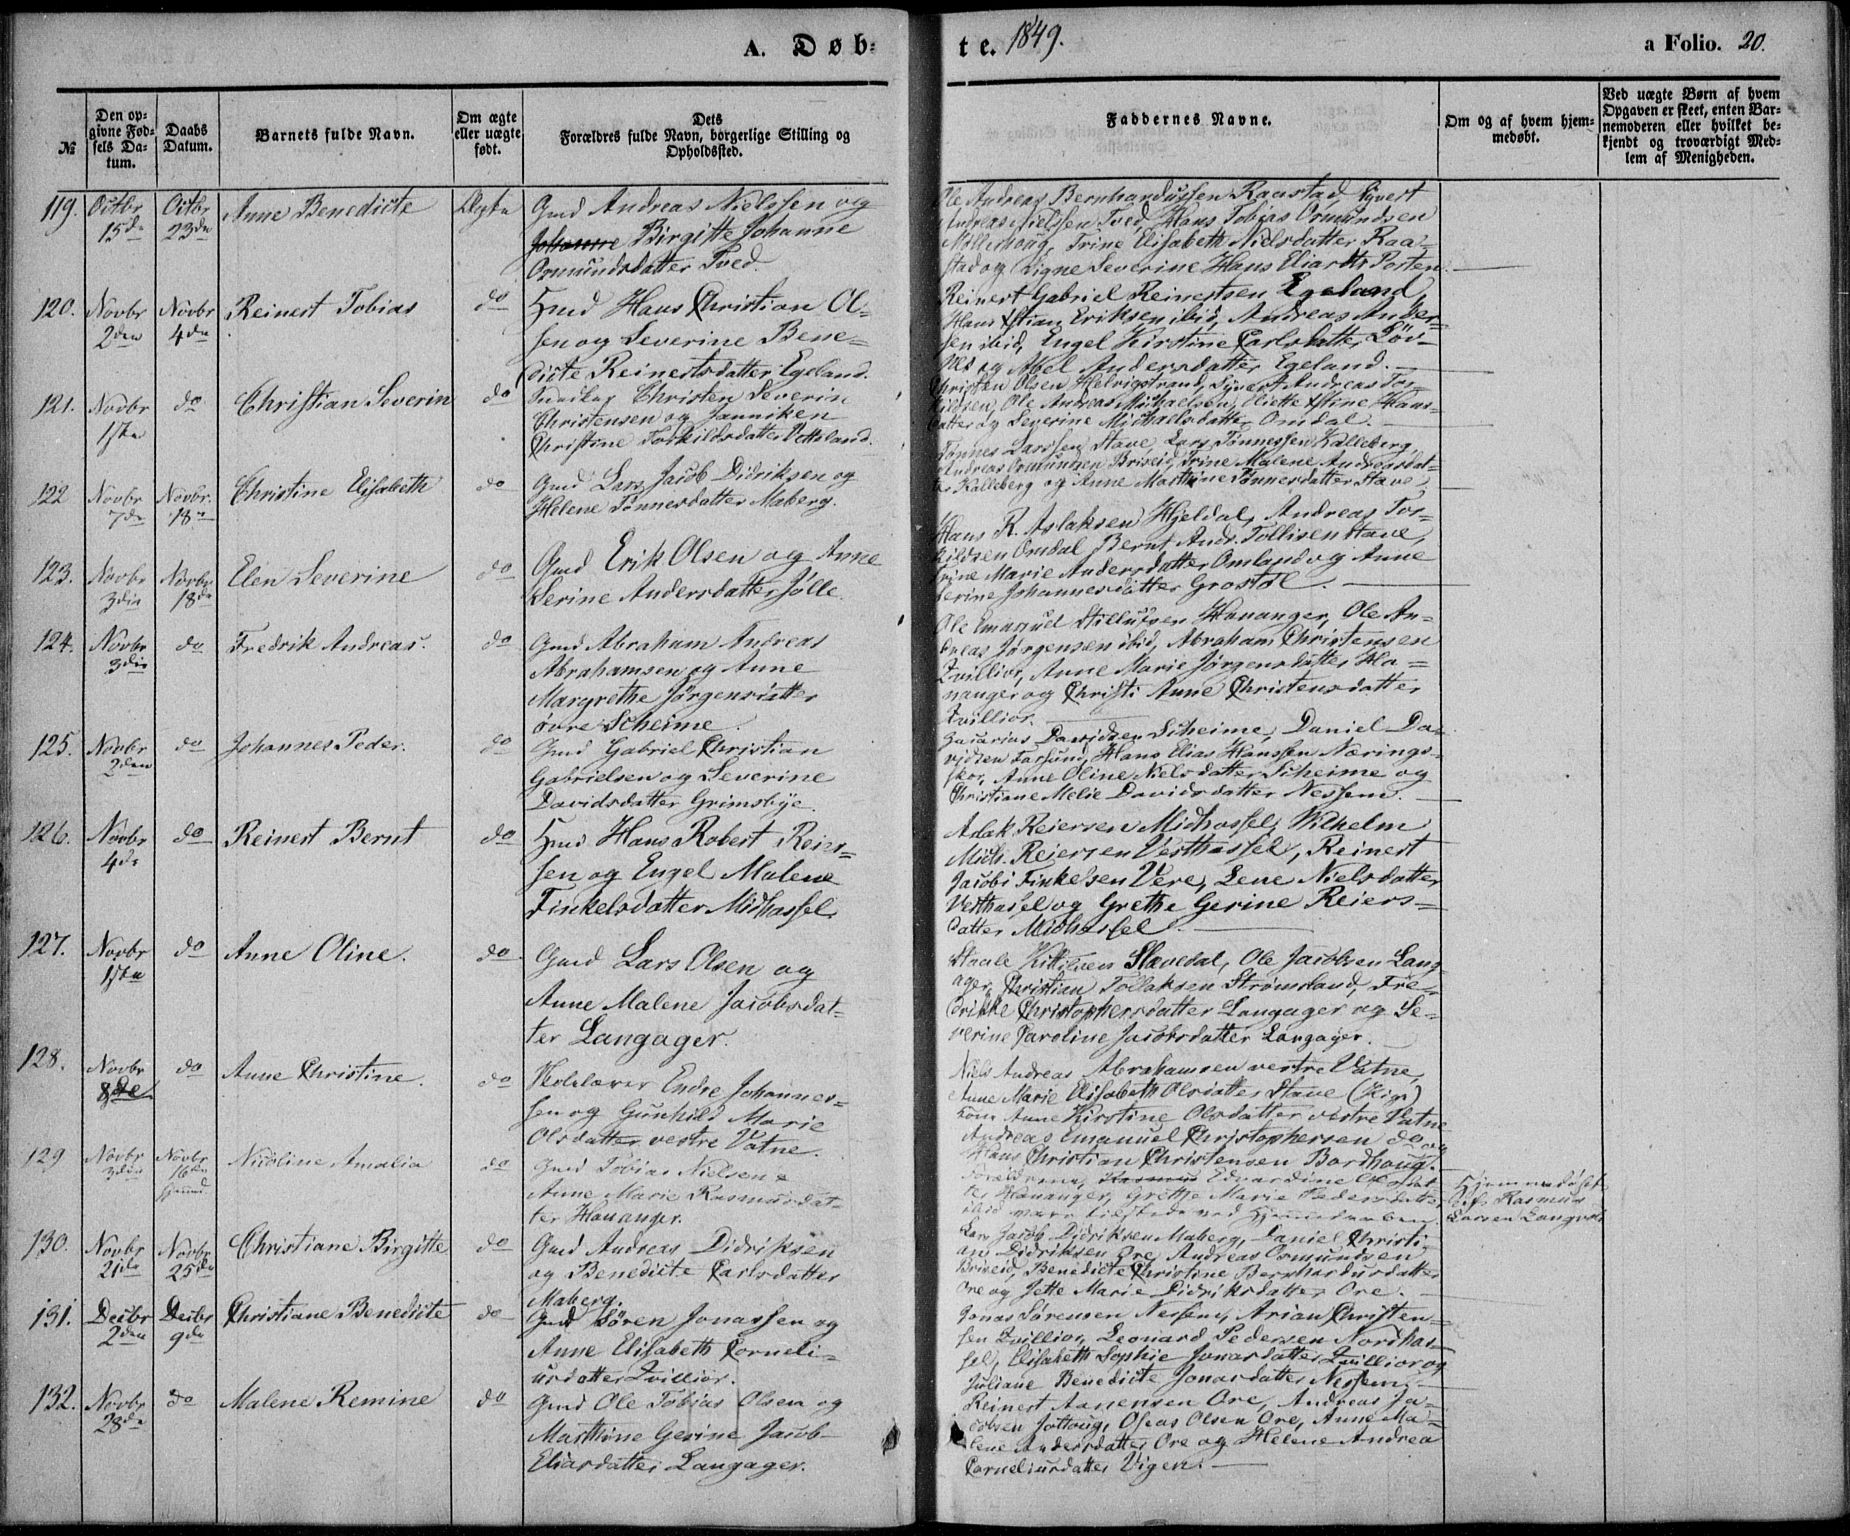 A. Døb-
te. 1849.
a Folio. 20.
№
Den op-
givne Fød-
sels Da-
tum.
Daabs
Datum.
Barnets fulde Navn.
Om ægte
eller uægte
født.
Dets
Forældres fulde Navn, borgerlige Stilling og
Opholdssted.
Faddernes Navne.
Om og af hvem hjem-
medøbt.
Ved uægte Børn af hvem
Opgaven er skeet, enten Bar-
nemoderen eller hvilket be-
kjendt og troværdigt Med-
lem af Menigheden.
119. Octbr 15de Octbr 23de Anne Benedicte Ægte Gmd Andreas Nielssen og
Johanne Birgitte Johanne
Osmundsdatter Tved.
Ole Andreas Bernhardussen Raastad, Sivert
Andreas Nielssen Tved, Hans Tobias Osmundsen
Møllerhoug, Trine Elisabeth Nielsdatter Raa-
stad og Signe Severine Hans Eliasdtr Porten.
120. Novbr 2den Novbr 4de Reinert Tobias do Hmd Hans Christian Ol-
sen og Severine Bene-
dicte Reinertsdatter Egeland.
Reinert Gabriel Reinertsen Egeland,
Hans Xstian Eriksen ibid, Andreas Ander-
sen ibid, Engel Kirstine Carlsdatter Löv-
nes og Abel Andersdatter Egeland.
121. Novbr 1ste do Christian Severin do Christen Severin
Christensen og Janniken
Christine Torkildsdatter Vetteland.
Christen Olsen Helvigstrand, Sivert Andreas Tor-
kildsen, Ole Andreas Michaelsen, Xstine Hans-
datter og Severine Michaelsdatter Omdal.
122 Novbr 7de Novbr. 18de Christine Elisabeth do Gmd Lars Jacob Didriksen og
Helene Tønnesdatter Maberg.
Tønnes Larssen Stave, Lars Tønnessen Kalleberg,
Andreas Osmundsen Briseid, Trine Malene Andreasdat-
ter Kalleberg og Anne Marthine Tønnesdatter Stave.
123. Novbr 3die Novbr 18de Elen Severine do Gmd Erik Olsen og Anne
Serine Andersdatter Jølle.
Hans R. Aslaksen Hjeldal, Andreas Tor-
kildsen Omdal, Bernt Ands. Tollisen Stave,
Trine Marie Andersdatter Omland og Anne
Serine Johannesdatter Grostøl.
124. Novbr 3die do Fredrik Andreas. do Gmd Abraham Andreas
Abrahamsen og Anne
Margrethe Jørgensdatter
øvre Scheime.
Ole Emanuel Hananger, Ole An-
dreas Jørgensen ibid, Abraham Christensen
Zvillior, Anne Marie Jørgensdatter Ha-
nanger og Christi Anne Christensdatter
Zvillior.
125. Novbr 2den do Johannes Peder. do Gmd Gabriel Christian
Gabrielsen og Severine
Davidsdatter Grimsbye.
Zacarias Davidsen Scheime, Daniel Da-
vidsen Farsund, Hans Elias Hanssen Nærings-
skor, Anne Oline Nielsdatter Scheime og
Christiane Melie Davidsdatter Nessem.
126. Novbr 4de do Reinert Bernt do Hmd Hans Robert Reier-
sen og Engel Malene
Finkelsdatter Midhassel.
Aslak Reiersen Midhassel, Wilhelm
Mich. Reiersen Vesthassel, Reinert
Jacobi Finkelsen Vere, Lene Nielsdatter
Vesthasel og Grethe Gerine Reiers-
datter Midhassel.
127. Novbr 1ste do Anne Oline. do Gmd Lars Olsen og
Anne Malene Jacobsdat-
ter Langager.
Staale Kittilsen Slævedal, Ole Jacobsen Lang-
ager, Christian Tollaksen Strømsland, Fre-
drikke Christophersdatter Langager og Se-
verine Caroline Jacobsdatter Langager.
128. Novbr 8de do Anne Christine. do Skolelærer Endre Johannes-
sen og Gunhild Marie
Olsdatter vestre Vatne.
Niels Andreas Abrahamsen vestre Vatne,
Anne Marie Elisabeth Olsdatter Stave
Anne Kirstine Olsdatter vestre Vatne
Andreas Emanuel Christophersen do og
Hans Christian Christensen Bordhoug.
129 Novbr 3die Novbr 16de hjemd. Nicoline Amalia do Gmd Tobias Nielsen &
Anne Marie Rasmusdat-
ter Hananger.
Forældrene, Rasmus Edvardine Olsdat-
ter Hananger, Grethe Marie Pedersdatter
ibid vare tilstede ved Hjemmedaaben.
Hjemmedøbt
af Rasmus
Larsen
130. Novbr 21de Novbr 25de Christiane Birgitte do Gmd Andreas Didriksen
og Benedicte Carlsdatter
Maberg.
Lars Jacob Didriksen Maberg, Daniel Christi-
an Didriksen Ore, Andreas Osmundsen
Briseid, Benedicte Christine Bernhardusdatter
Ore og Jette Marie Didriksdatter Ore.
131. Decbr 2den Decbr 9de Christiane Benedicte do Gmd Sören Jonassen og
Anne Elisabeth Corneli-
usdatter Zvillior.
Jonas Sørensen Nessem, Arian Christen-
sen Zvillior, Leonard Pedersen Nordhas-
sel, Elisabeth Sophie Jonasdatter Zvillior og
Juliane Benedicte Jonasdatter Nessem.
132. Novbr 28de do Malene Remine do Gmd Ole Tobias Olsen og
Marthine Gerine Jacob
Eliasdatter Langager.
Reinert Aanensen Ore, Andreas Ja-
cobsen Jottoug, Oseas Olsen Ore, Anne Ma-
lene Andersdatter Ore og Helene Andrea
Corneliusdatter Vigen.